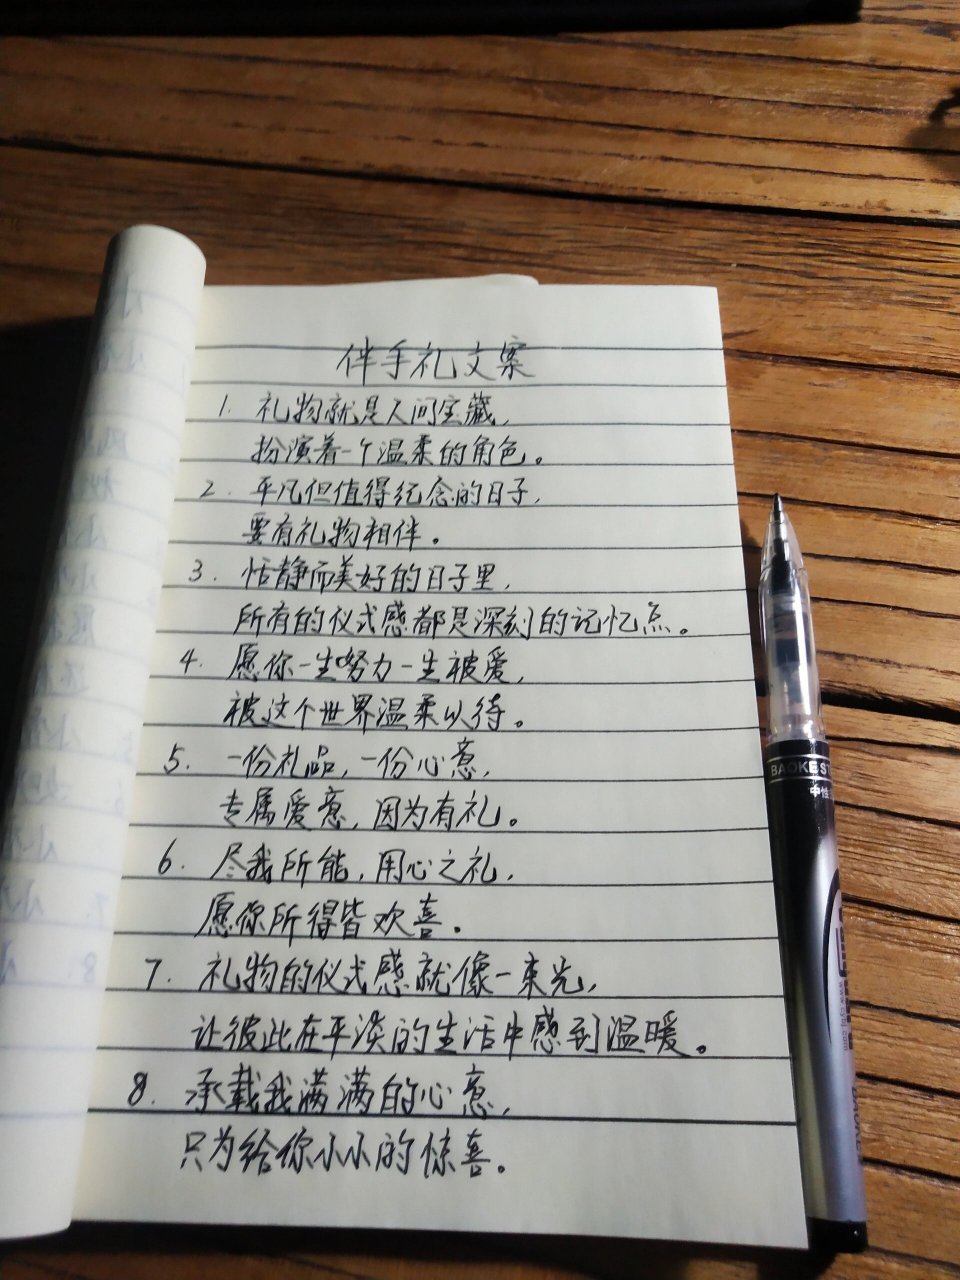 伴手礼文案
1. 礼物就是人间宝藏,
扮演着一个温柔的角色。
2. 平凡但值得纪念的日子,
要有礼物相伴。
3. 恬静而美好的日子里,
所有的仪式感都是深刻的记忆点。
4. 愿你一生努力一生被爱,
被这个世界温柔以待。
5. 一份礼品,一份心意,
专属爱意,因为有礼。
6. 尽我所能,用心之礼,
愿你所得皆欢喜。
7. 礼物的仪式感就像一束光,
让彼此在平淡的生活中感到温暖。
8. 承载我满满的心意,
只为给你小小的惊喜。
BAOKE
中性